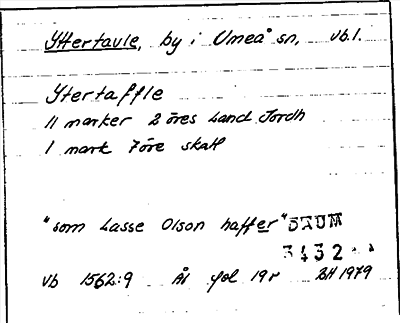 Yttertavle, by i Umeå sn, vb.1.
Ytertaffle
11 marker 2 öres Land Jordh
1 mark 7 öre skatt
"som Lasse Olson haffer" DAUM
3432
vb 1562:9 Ål fol 19r BH 1979